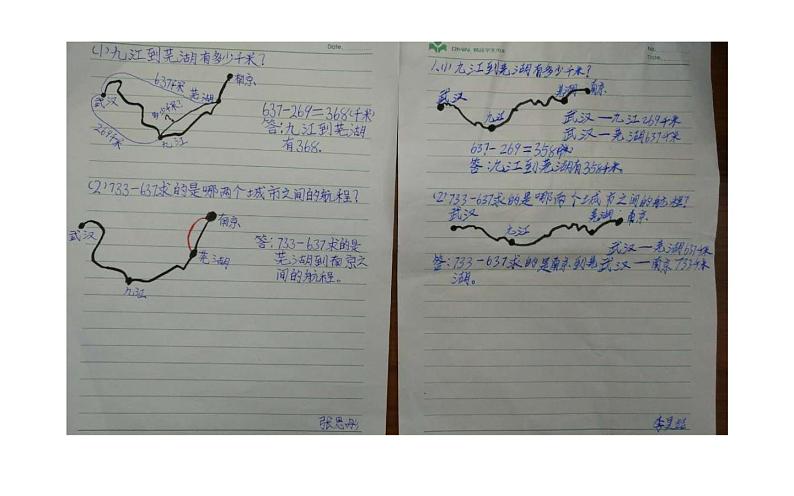 Date.
(1)九江到芜湖有多少千米?
637千米
南京
芜湖
武汉
多少千米?
269千米
九江
637-269=368(千米)
答:九江到芜湖
有368.
(2)733-637求的是哪两个城市之间的航程?
南京
武汉
芜湖
九江
答:733-637求的是
芜湖到南京之
间的航程。
张思彤
No.
Date.
1.(1)九江到芜湖有多少千米?
武汉
芜湖
南京
九江
武汉—九江269千米
武汉—芜湖637千米
637-269=358(千米)
答:九江到芜湖有358千米.
(2)733-637求的是哪两个城市之间的航程?
武汉
芜湖
南京
九江
武汉—芜湖637千米
武汉—南京733千米
答:733-637求的是南京到芜
湖。